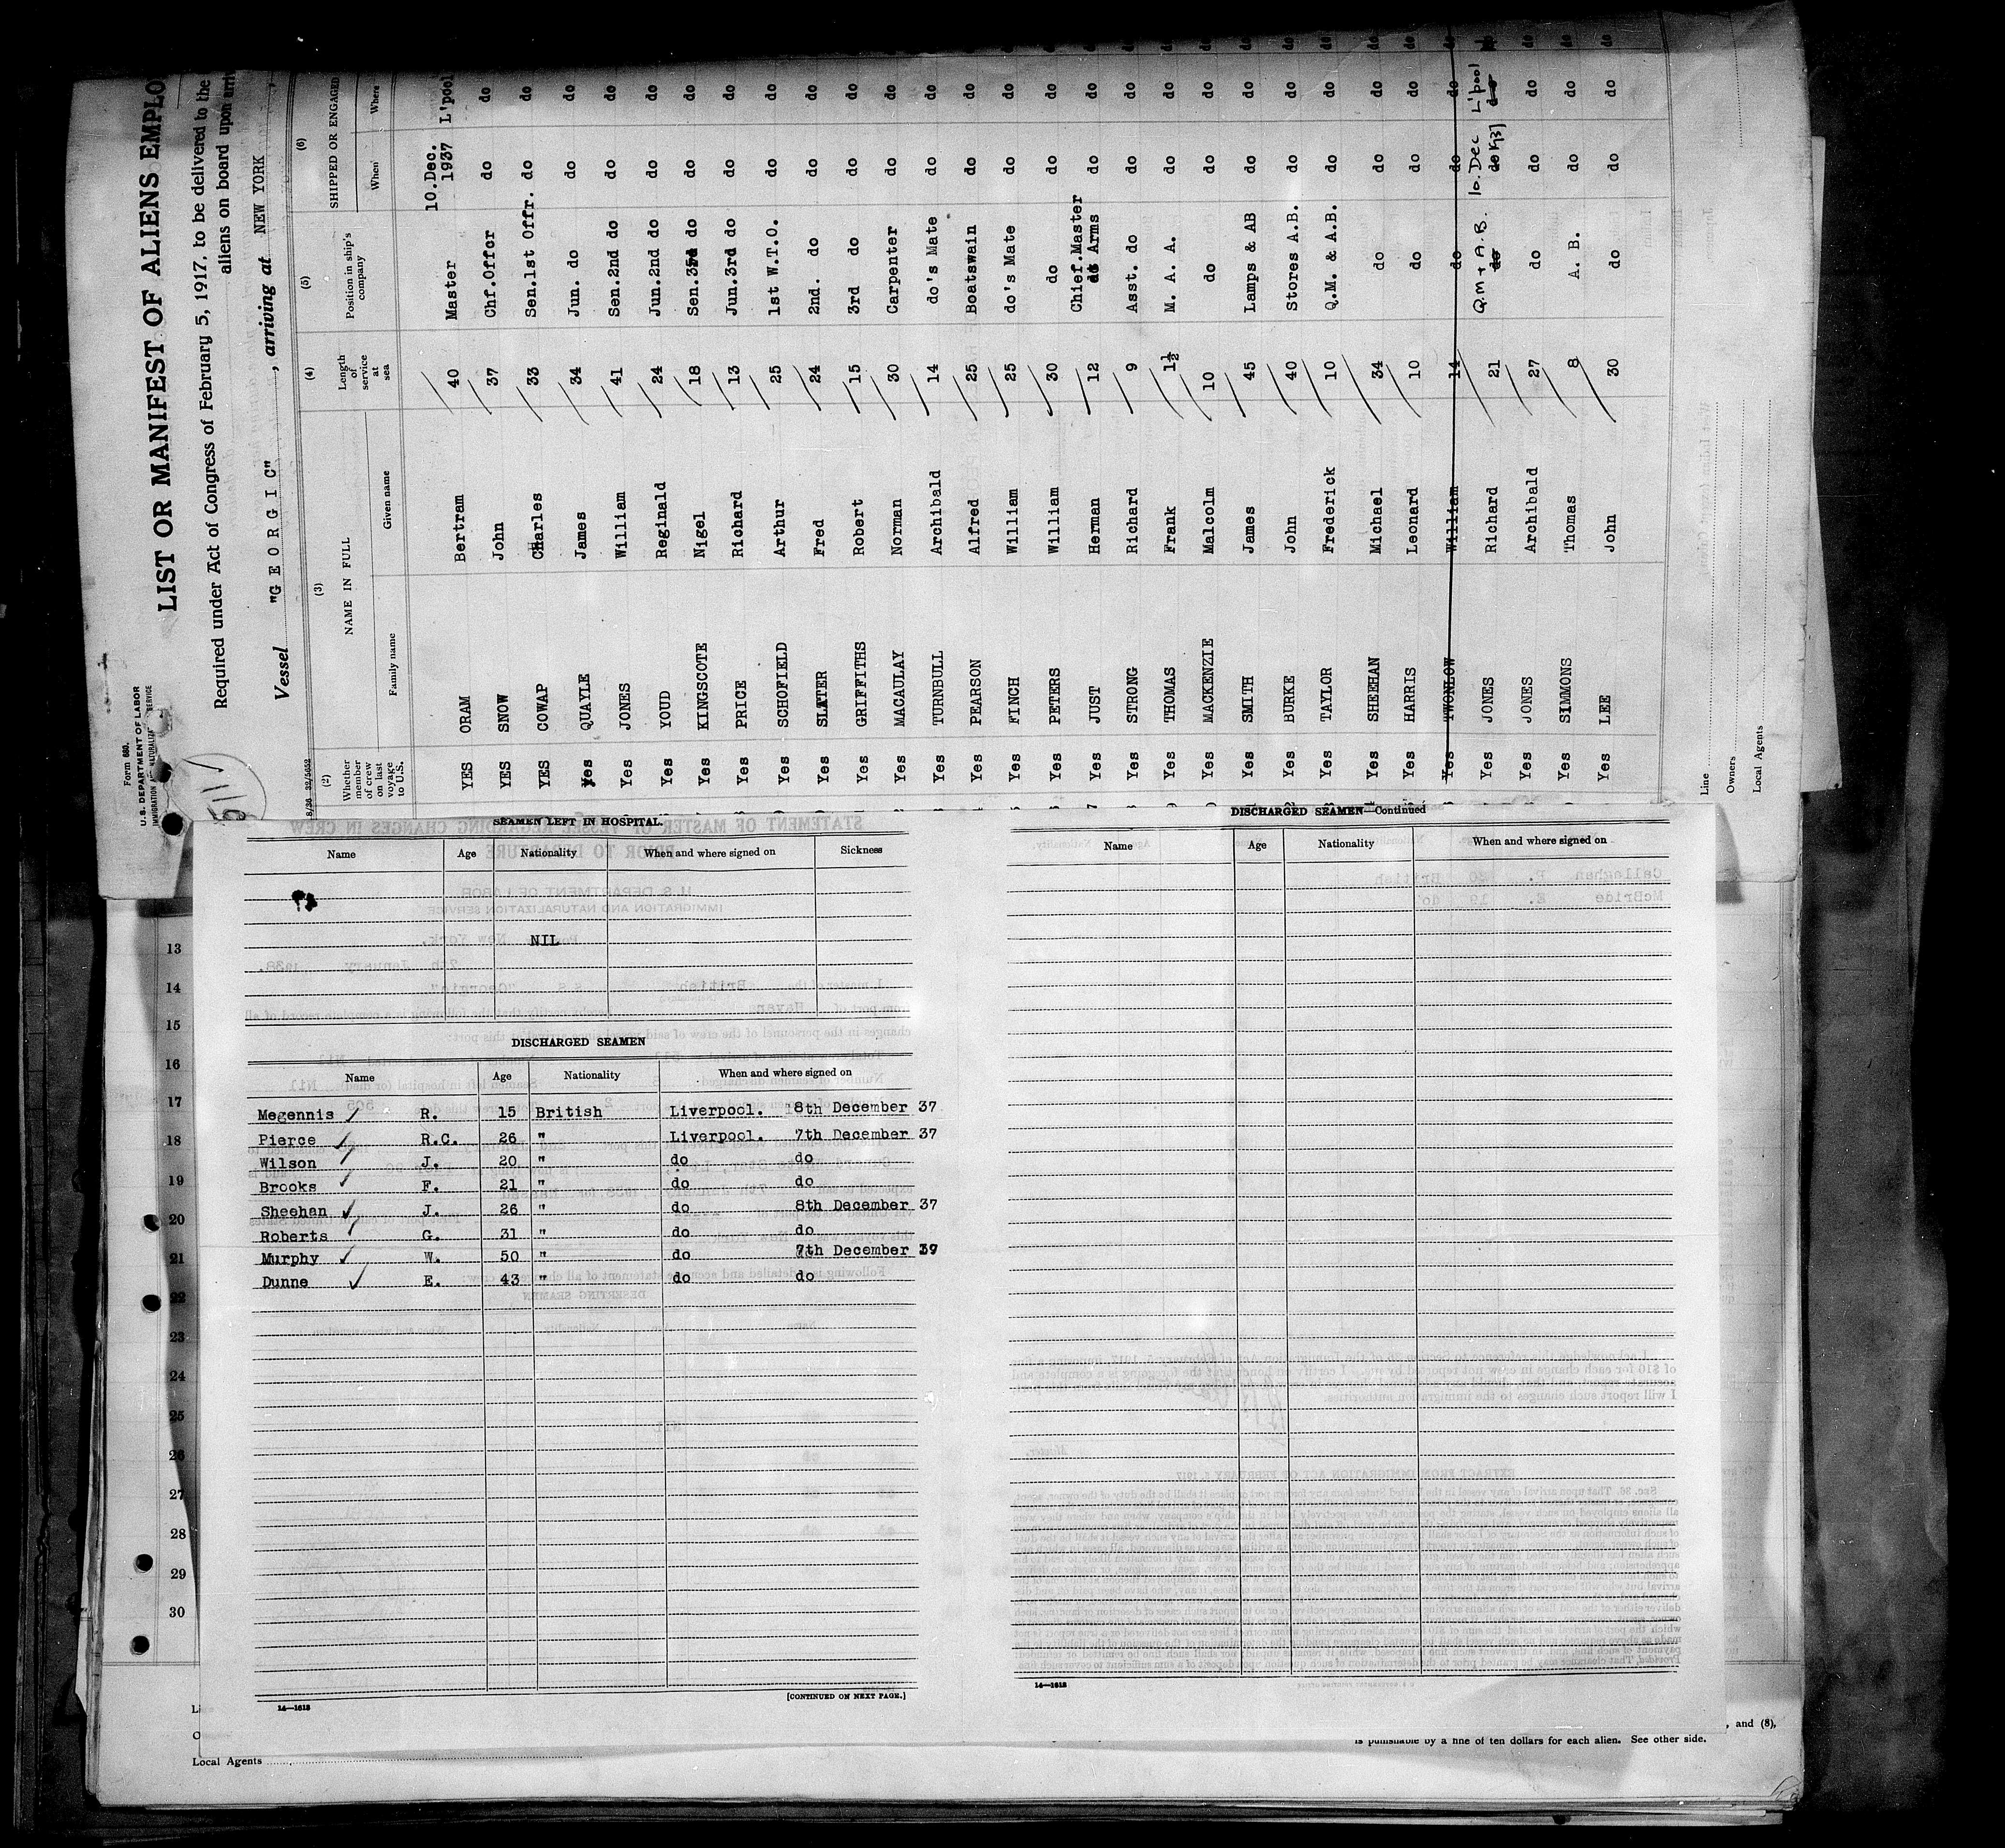 Form 680.
U. S. DEPARTMENT OF LABOR
IMMIGRATION AND NATURALIZATION SERVICE
LIST OR MANIFEST OF ALIENS EMPLO
Required under Act of Congress of February 5, 1917, to be delivered to the
aliens on board upon arri
Vessel "G E O R G I C", arriving at NEW YORK
(2) (3) (4) (5) (6)
Whether member of crew on last voyage to U.S. NAME IN FULL Length of service at sea Position in ship's company SHIPPED OR ENGAGED
Family name Given name When Where
YES ORAM Bertram 40 Master 10.Dec. 1937 L'pool
YES SNOW John 37 Chf.Offcr do do
YES COWAP Charles 33 Sen.1st Offr. do do
Yes QUAYLE James 34 Jun. do do do
Yes JONES William 41 Sen.2nd do do do
Yes YOUD Reginald 24 Jun.2nd do do do
Yes KINGSCOTE Nigel 18 Sen.3rd do do do
Yes PRICE Richard 13 Jun.3rd do do do
Yes SCHOFIELD Arthur 25 1st W.T.O. do do
Yes SLATER Fred 24 2nd. do do do
Yes GRIFFITHS Robert 15 3rd do do do
Yes MACAULAY Norman 30 Carpenter do do
Yes TURNBULL Archibald 14 do's Mate do do
Yes PEARSON Alfred 25 Boatswain do do
Yes FINCH William 25 do's Mate do do
Yes PETERS William 30 do do do
Yes JUST Herman 12 Chief.Master at Arms do do
Yes STRONG Richard 9 Asst. do do do
Yes THOMAS Frank 1½ M. A. A. do do
Yes MACKENZIE Malcolm 10 do do do
Yes SMITH James 45 Lamps & AB do do
Yes BURKE John 40 Stores A.B. do do
Yes TAYLOR Frederick 10 Q.M. & A.B. do do
Yes SHEEHAN Michael 34 do do do
Yes HARRIS Leonard 10 do do do
Yes TWONLOW William 14 do do do
Yes JONES Richard 21 do Q.M + A.B. do 10.Dec 1937 do L'pool
Yes JONES Archibald 27 do do do
Yes SIMMONS Thomas 8 A. B. do do
Yes LEE John 30 do do do
Line
Owners
Local Agents
SEAMEN LEFT IN HOSPITAL.
Name Age Nationality When and where signed on Sickness
NIL
DISCHARGED SEAMEN
Name Age Nationality When and where signed on
Megennis R. 15 British Liverpool. 8th December 37
Pierce R.C. 26 " Liverpool. 7th December 37
Wilson J. 20 " do do
Brooks F. 21 " do do
Sheehan J. 26 " do 8th December 37
Roberts G. 31 " do do
Murphy W. 50 " do 7th December 37
Dunne E. 43 " do do
14—1618
[CONTINUED ON NEXT PAGE.]
DISCHARGED SEAMEN—Continued
Name Age Nationality When and where signed on
14—1618
13
14
15
16
17
18
19
20
21
22
23
24
25
26
27
28
29
30
, and (8),
is punishable by a fine of ten dollars for each alien. See other side.
Local Agents